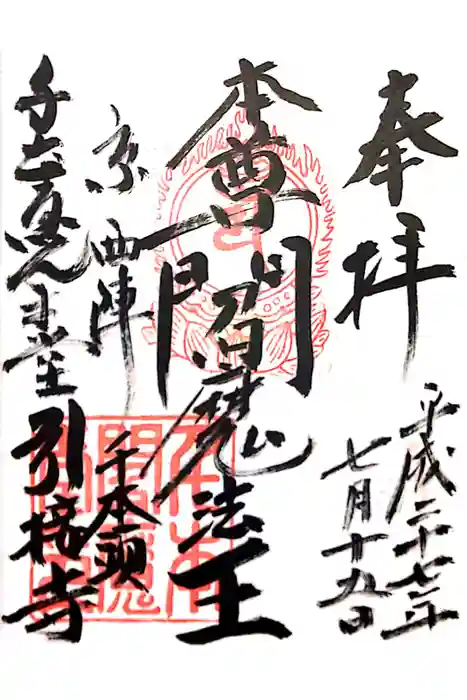 奉拝
平成二十七年
七月十九日
本尊閻魔法王
京西陣
千本頭
千本ゑんま堂引接寺